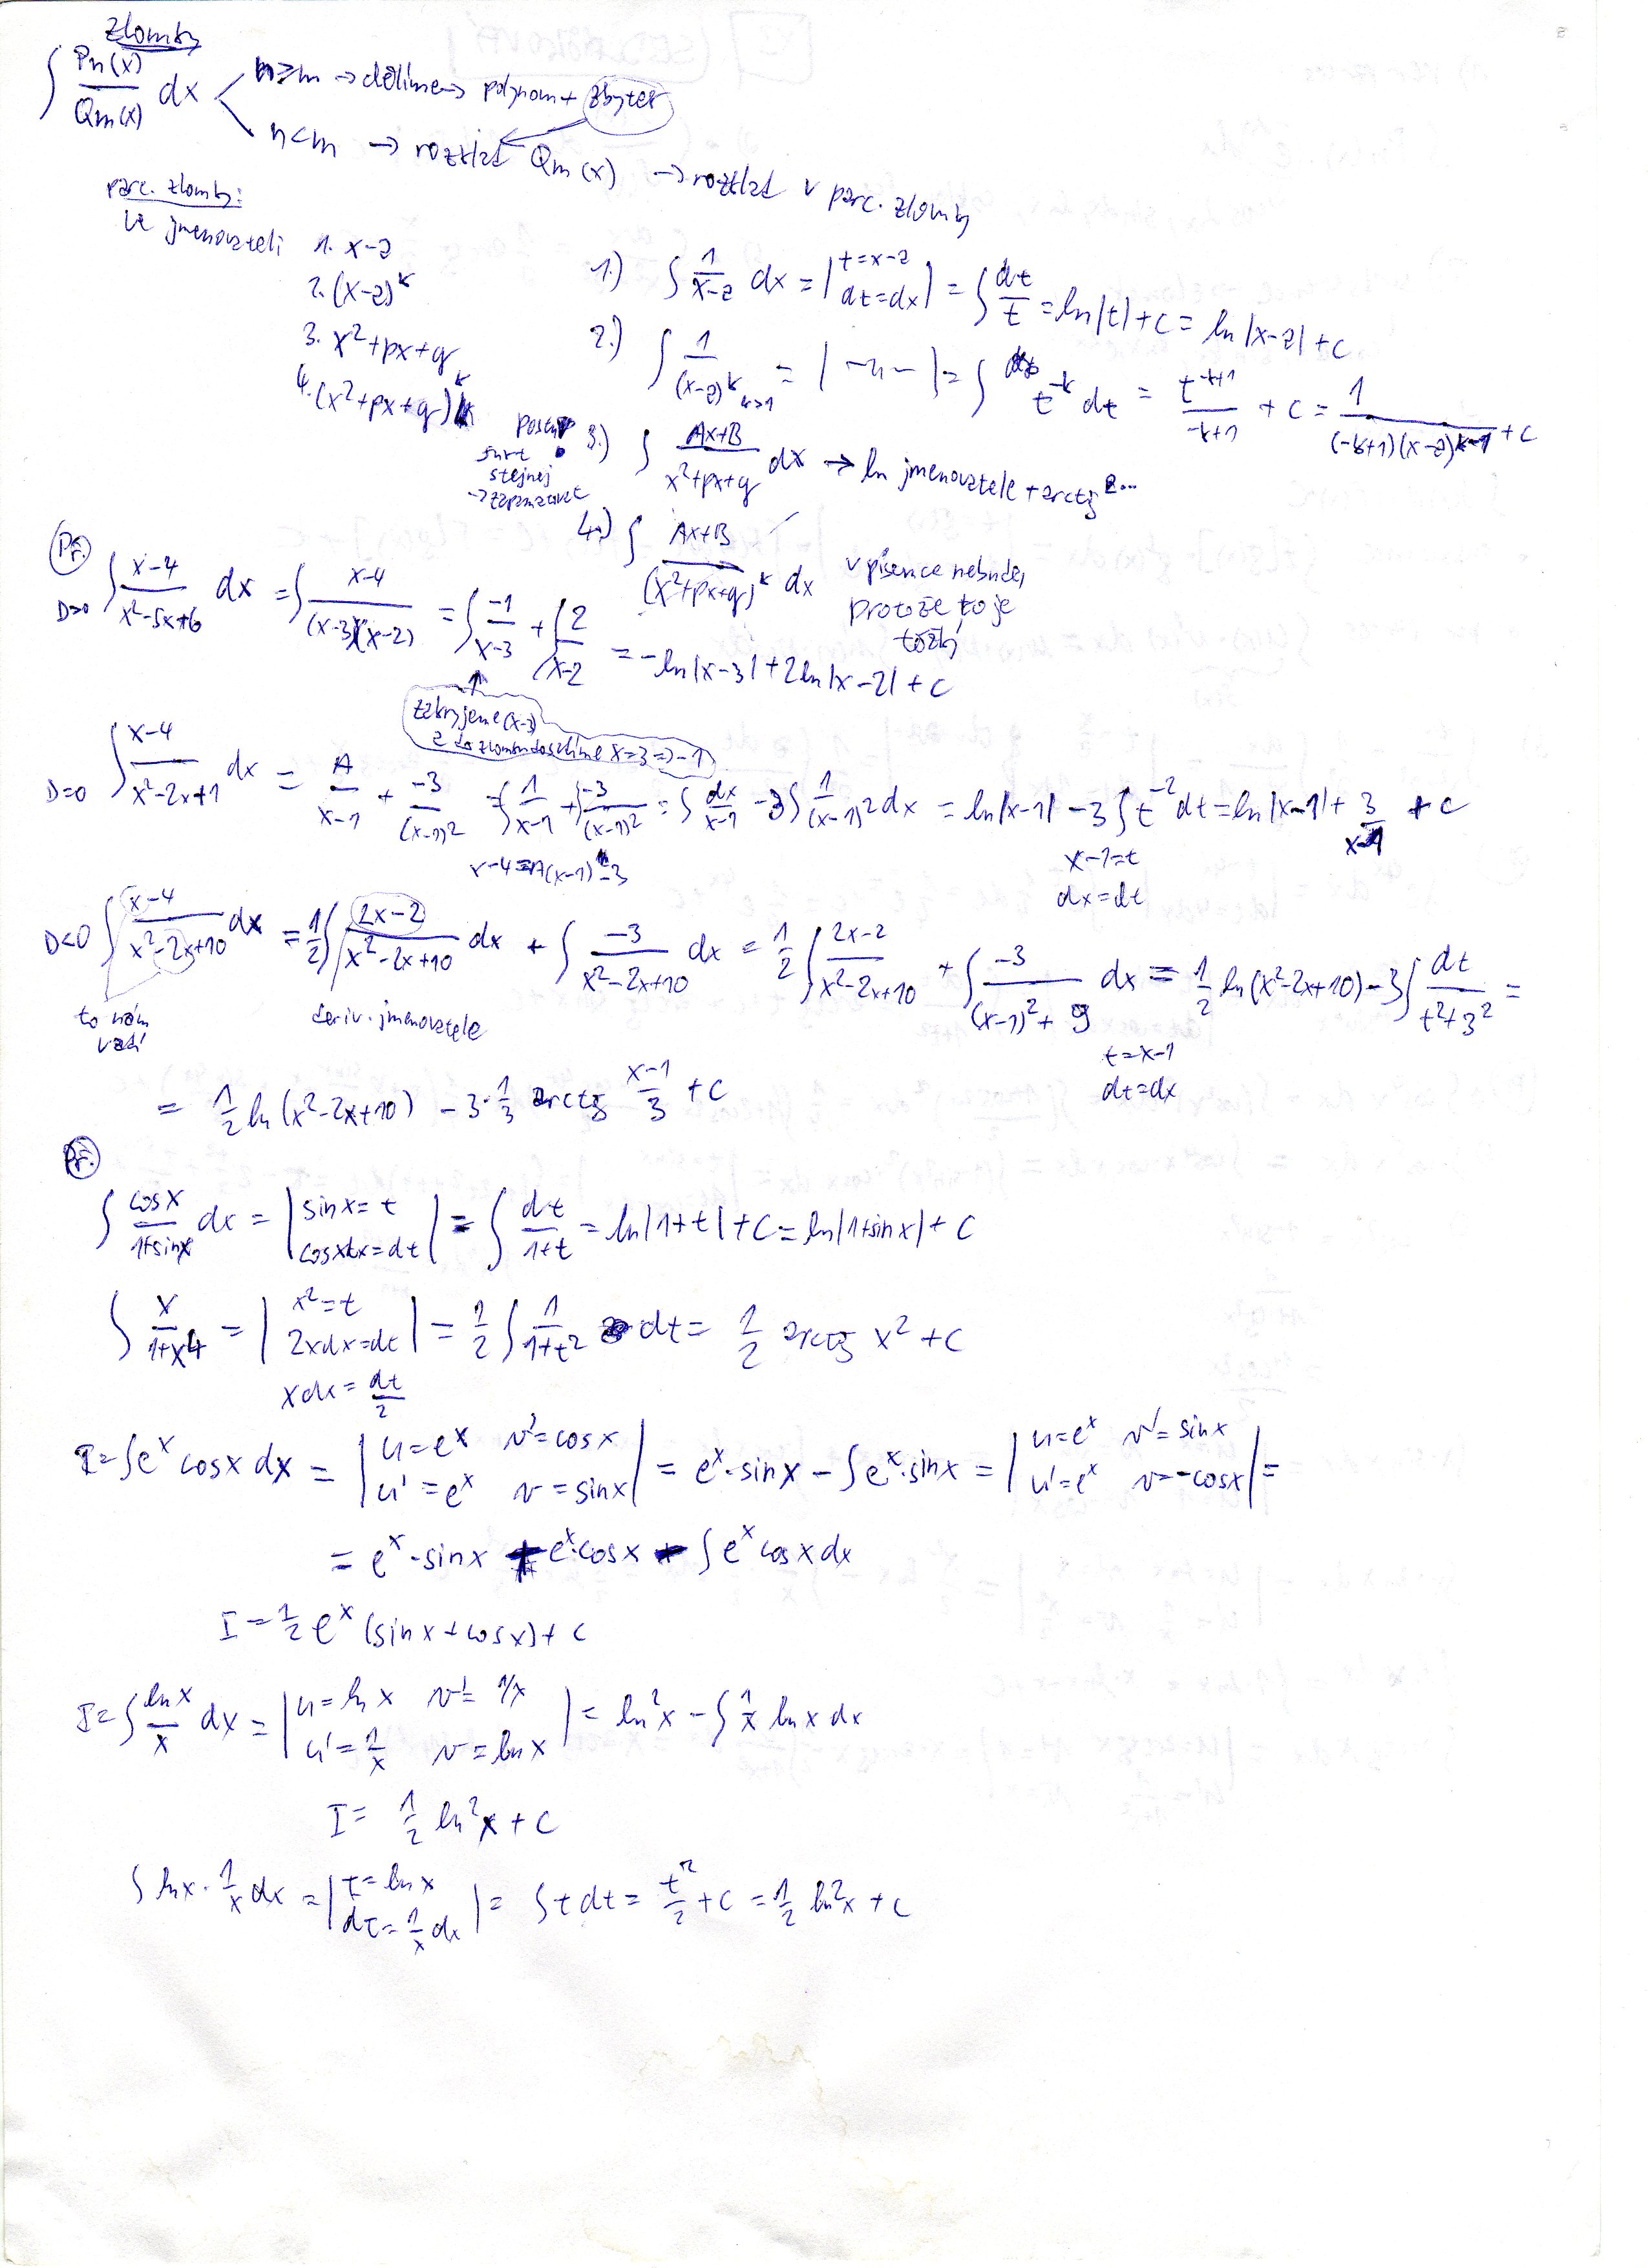 zlomky
∫ Pn(x)/Qm(x) dx
n≥m → dělíme → polynom + zbytek
n<m → rozklad Qm(x) → rozklad v parc. zlomky
parc. zlomky:
ve jmenovateli 1. x-a
2. (x-a)^k
3. x²+px+q
4. (x²+px+q)^k
1.) ∫ 1/(x-a) dx = |t=x-a dt=dx| = ∫ dt/t = ln|t|+c = ln|x-a|+c
2.) ∫ 1/(x-a)^k k>1 = | -॥- | = ∫ t^-k dt = t^(-k+1)/(-k+1) + c = 1/((-k+1)(x-a)^(k-1)) + c
postup furt stejnej → zapamatovat
3.) ∫ (Ax+B)/(x²+px+q) dx → ln jmenovatele + arctg ...
4.) ∫ (Ax+B)/(x²+px+q)^k dx v písemce nebude, protože to je těžký
Př.
D>0 ∫ (x-4)/(x²-5x+6) dx = ∫ (x-4)/((x-3)(x-2)) = ∫ -1/(x-3) + ∫ 2/(x-2) = -ln|x-3| + 2ln|x-2| + c
zakryjeme (x-3) a do zlomku dosadíme x=3 => -1
D=0 ∫ (x-4)/(x²-2x+1) dx = A/(x-1) + -3/(x-1)² = ∫ 1/(x-1) + ∫ -3/(x-1)² = ∫ dx/(x-1) - 3∫ 1/(x-1)² dx = ln|x-1| - 3∫ t^-2 dt = ln|x-1| + 3/(x-1) + c
x-4=A(x-1)-3
x-1=t
dx=dt
D<0 ∫ (x-4)/(x²-2x+10) dx = 1/2 ∫ (2x-2)/(x²-2x+10) dx + ∫ -3/(x²-2x+10) dx = 1/2 ∫ (2x-2)/(x²-2x+10) + ∫ -3/((x-1)²+9) dx = 1/2 ln(x²-2x+10) - 3∫ dt/(t²+3²) =
to nám vadí
deriv. jmenovatele
t=x-1
dt=dx
= 1/2 ln(x²-2x+10) - 3·1/3 arctg (x-1)/3 + c
Př.
∫ cosx/(1+sinx) dx = |sinx=t cosxdx=dt| = ∫ dt/(1+t) = ln|1+t|+c = ln|1+sinx|+c
∫ x/(1+x⁴) = |x²=t 2xdx=dt| = 1/2 ∫ 1/(1+t²) dt = 1/2 arctg x² + c
xdx = dt/2
I = ∫e^x cosx dx = |u=e^x v'=cosx u'=e^x v=sinx| = e^x·sinx - ∫e^x·sinx = |u=e^x v'=sinx u'=e^x v=-cosx| =
= e^x·sinx + e^x·cosx - ∫e^x cosx dx
I = 1/2 e^x (sinx+cosx) + c
I = ∫ lnx/x dx = |u=lnx v'=1/x u'=1/x v=lnx| = ln²x - ∫ 1/x lnx dx
I = 1/2 ln²x + c
∫ lnx · 1/x dx = |t=lnx dt=1/x dx| = ∫ t dt = t²/2 + c = 1/2 ln²x + c